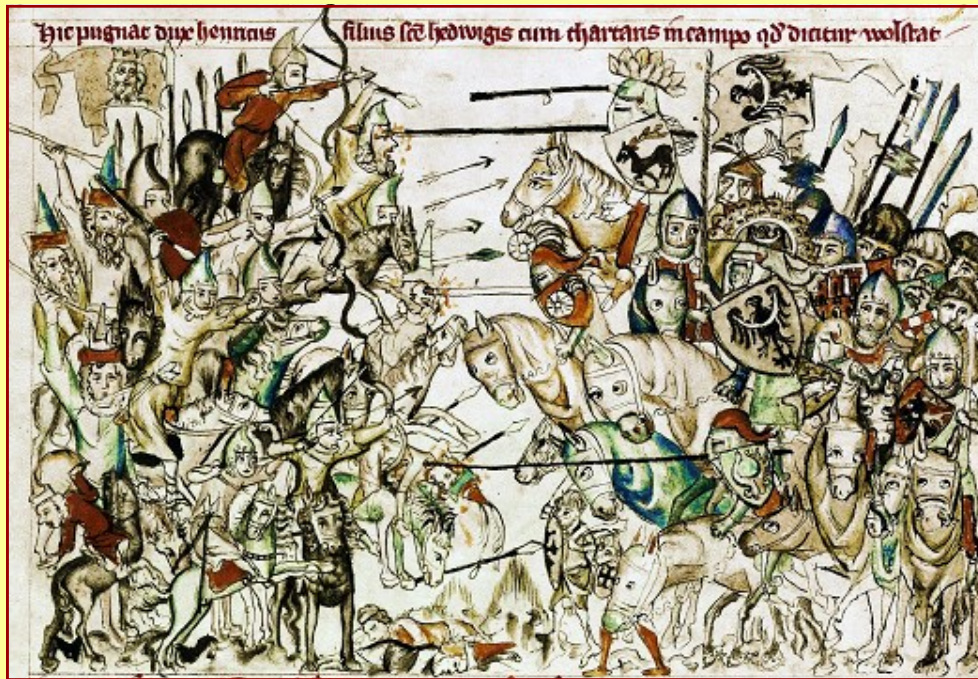 hic pugnat dux henricus filius scē hedwigis cum thartaris in campo qd̄ dicitur wolstat